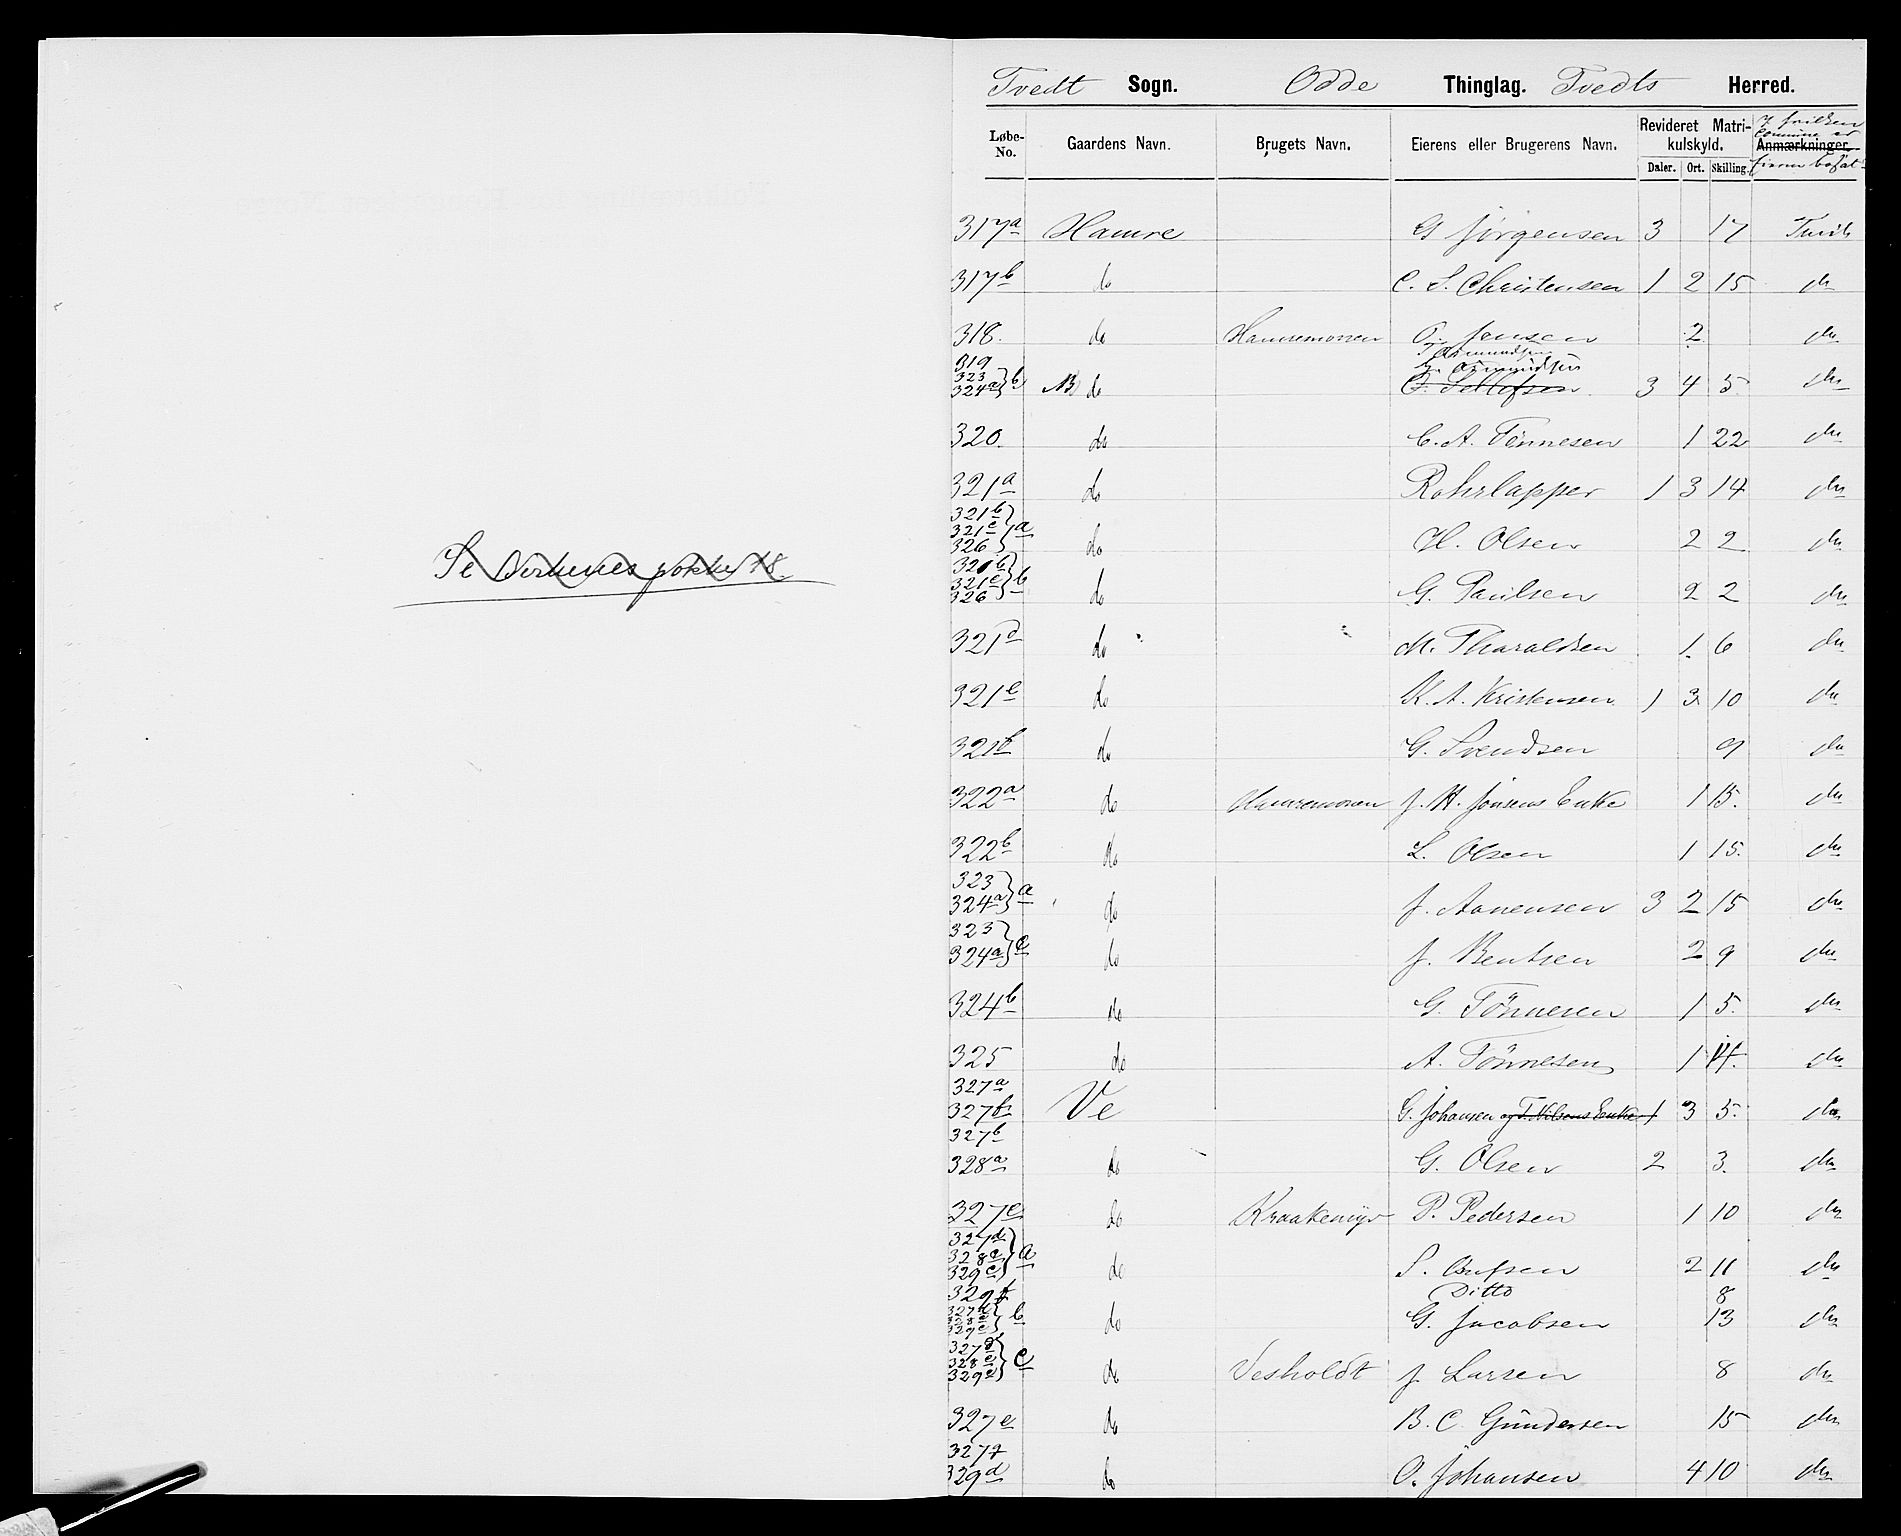 Se Birkenes pakke 18.
Tvedt Sogn. Odde Thinglag. Tvedts Herred.
Løbe-No. Gaardens Navn. Brugets Navn. Eierens eller Brugerens Navn. Revideret Matrikulskyld. Daler. Ort. Skilling. Anmærkninger. I hvilken Commune er Eieren bosat
317a Hamre G Jørgensen 3 17 Tveit
317b do C. S. Christensen 1 2 15 do
318. do Hamremoen O. Jensen 2 do
319 323 324a } b NB do O. Sellefsen 3 4 5 do
320. do C. A. Tönnesen 1 22 do
321a do Rohrlapper 1 3 14 do
321b 321c 326 } a do H. Olsen 2 2 do
321b 321c 326 } b do G. Paulsen 2 2 do
321d do M. Tharaldsen 1 6 do
321e do K. A. Kristensen 1 3 10 do
321f do G. Svendsen 9 do
322a do Hamremoen J. H. Jensens Enke 1 15. do
322b do L. Olsen 1 15. do
323 324a } a do J. Aanensen 3 2 15 do
323 324a } c do J. Bentsen 2 9 do
324b do G. Tönnesen 1 5. do
325 do A. Tönnesen 1 14. do
327a
327b Ve G. Johansen og T. Nilsens Enke 1 3 5. do
327b
328a do G. Olsen 2 3. do
327c do Kraakemyr P. Pedersen 1 10 do
327d 328c 329c } a do S. 2 11 do
329f Ditto 8
327d 328c 329c } b do G. Jacobsen 13 do
327d 328c 329c } c do Vesholdt J Larsen 8 do
327e do B. C. Gundersen 15 do
327f
329d do O. Johansen 4 10 do